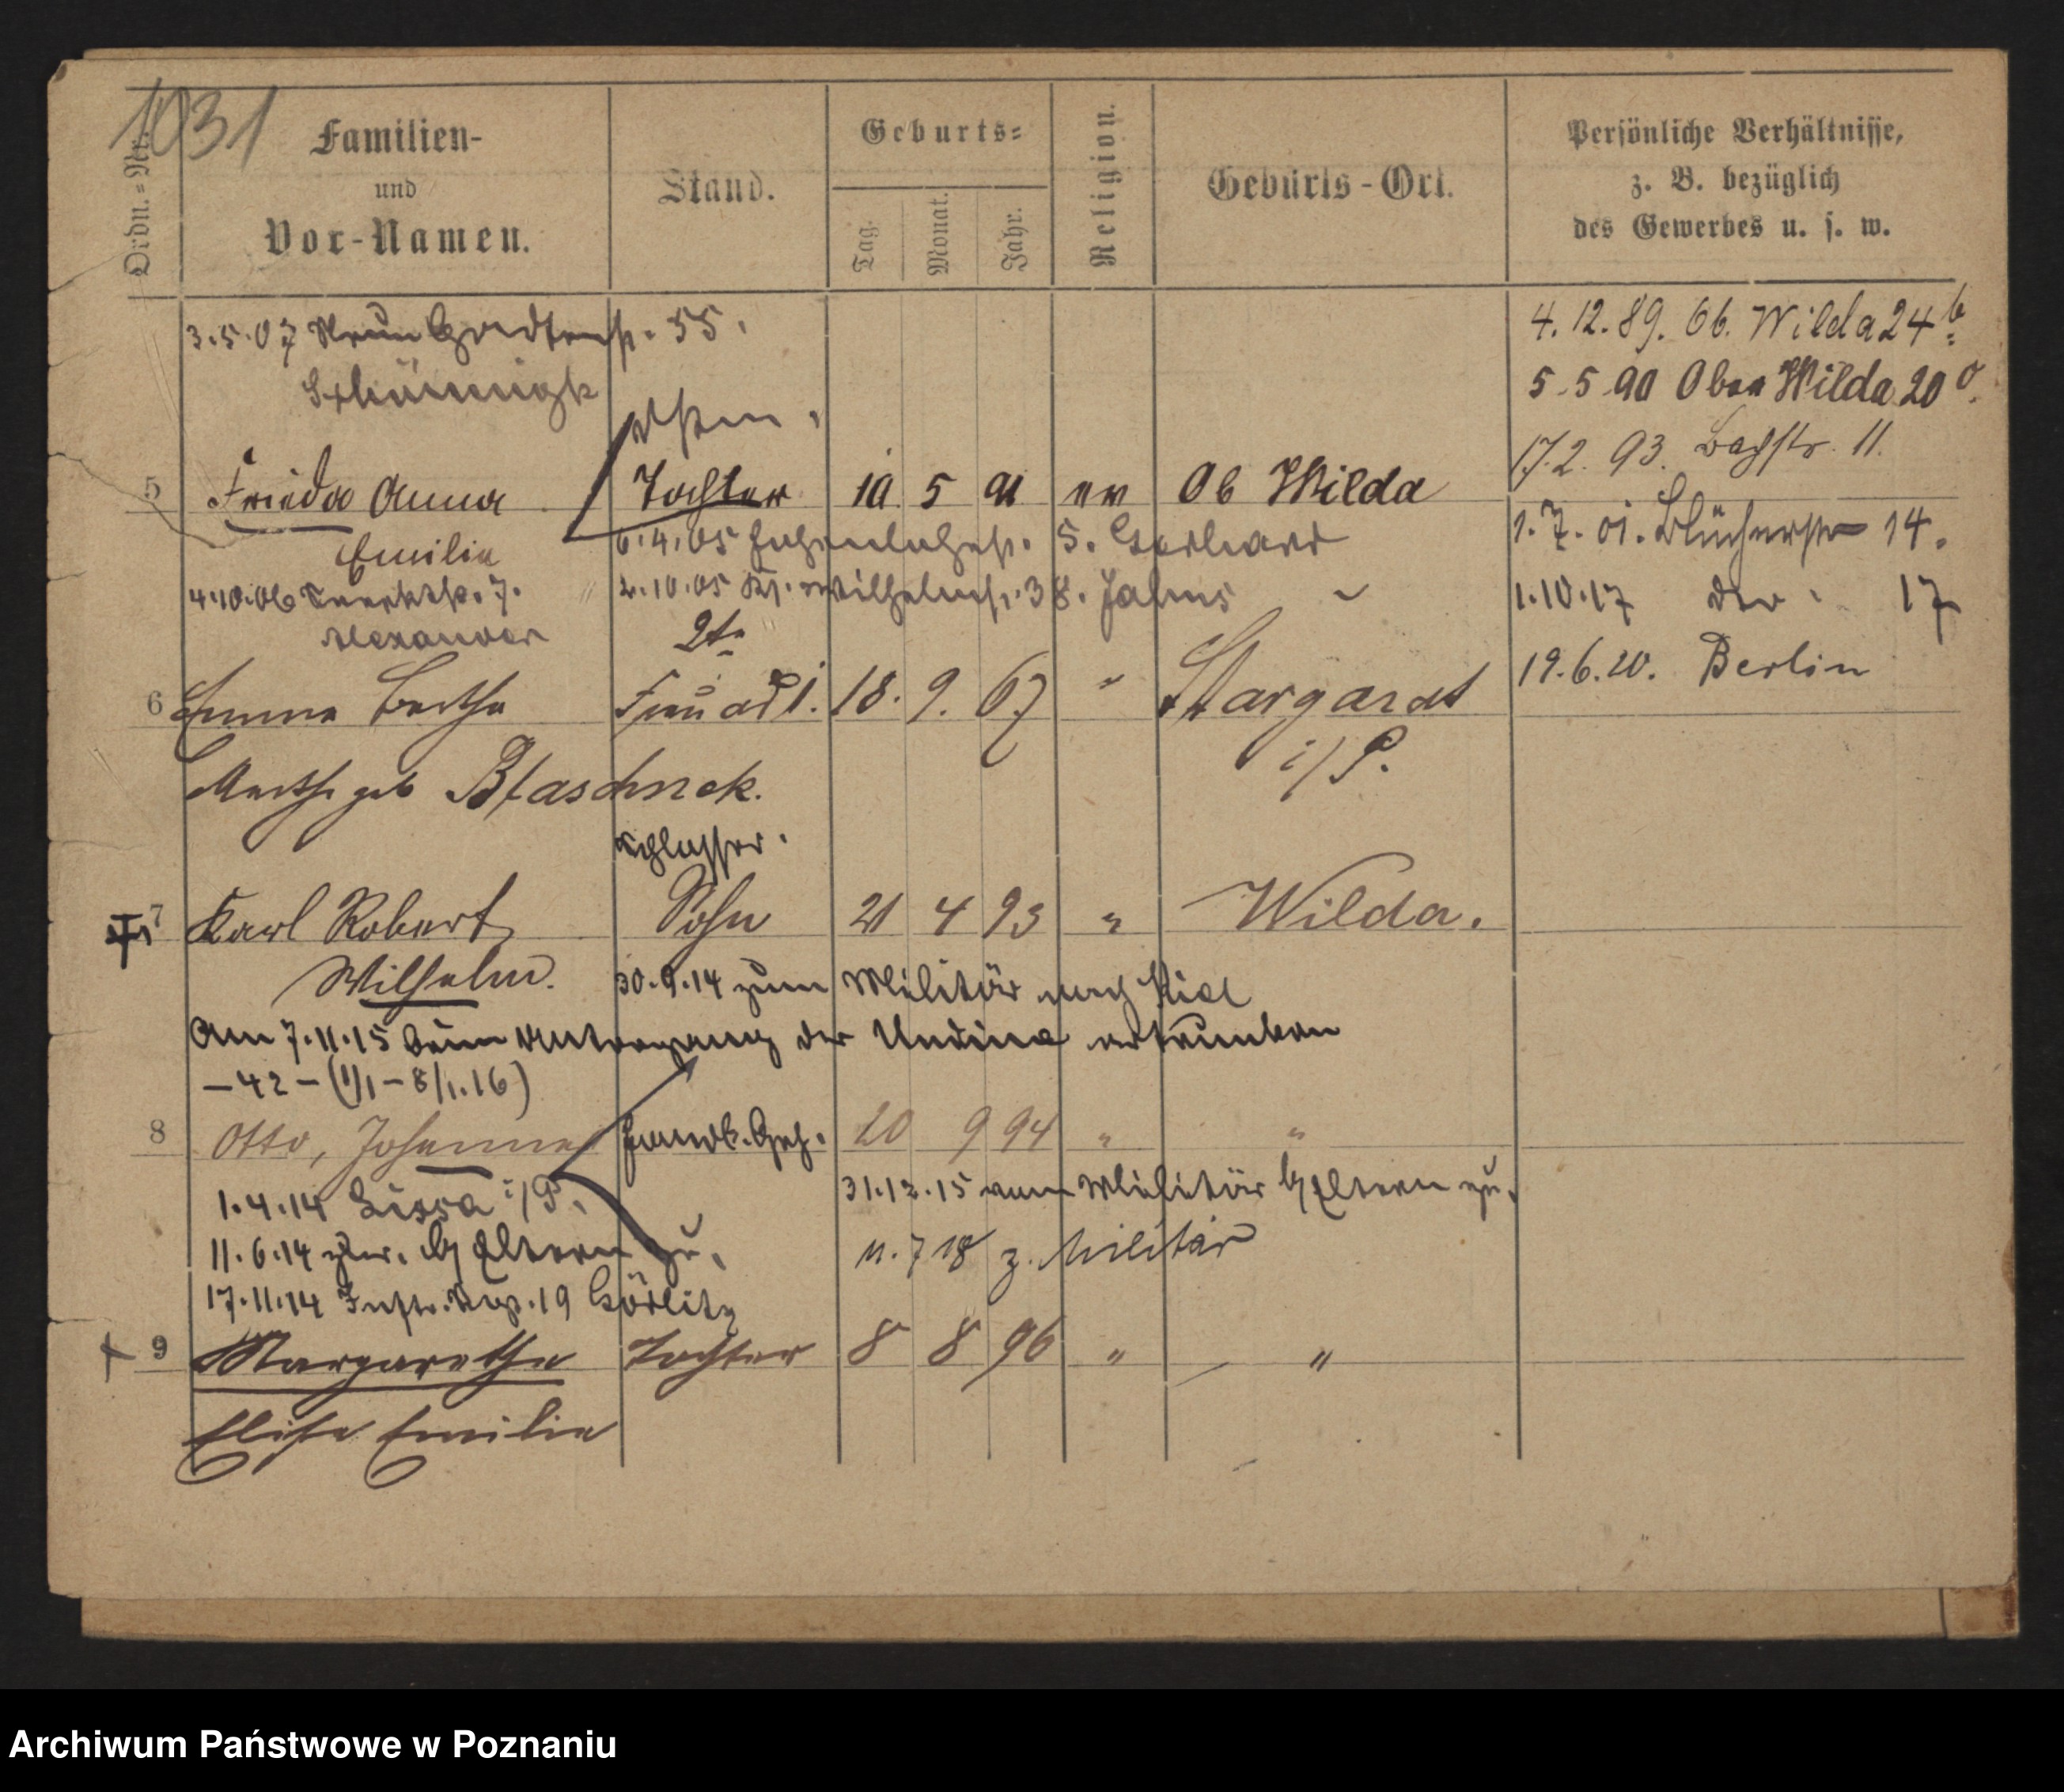 1031
Ordn.-Nr.
Familien-
und
Vor-Namen.
Stand.
Geburts-
Tag.
Monat.
Jahr.
Religion.
Geburts-Ort.
Persönliche Verhältnisse,
z. B. bezüglich
des Gewerbes u. s. w.
3.5.07 55.
4.12.89. Ob. Wilda 24b
5.5.90 Ober Wilda 20
17.2.93. Bachstr. 11.
5 Frieda Anna Tochter 10 5 91 ev Ob Wilda
Emilie
6.4.05 Hohenlohestr. 5. Gerhard
1.7.01. Blücherstr 14.
4.10.06 7.
Alexander
2.10.05 Kl. Wilhelmstr. 38. Jahns
1.10.17 17
19.6.20. Berlin
2te
6 Emma Bertha Frau ad 1. 18. 9. 67 " Stargardt
i/P.
Martha geb Blaschnek.
Schlosser.
7 Karl Robert Sohn 21 4 93 " Wilda.
Wilhelm.
30.9.14 zum Militär nach Kiel
Am 7.11.15 beim Untergang der Undine ertrunken
— 42 — (1/1 — 8/1.16)
8 Otto, Johannes Handl. Geh. 20 9 94 " "
1.4.14 Lissa i/P.
31.12.15 vom Militär b/ Eltern zu.
11.6.14 zur. b/ Eltern zu.
11.7 18 z. Militär
17.11.14 Inftr. Reg. 19 Görlitz
9 Margarethe Tochter 8 8 96 " "
Elise Emilie
Archiwum Państwowe w Poznaniu